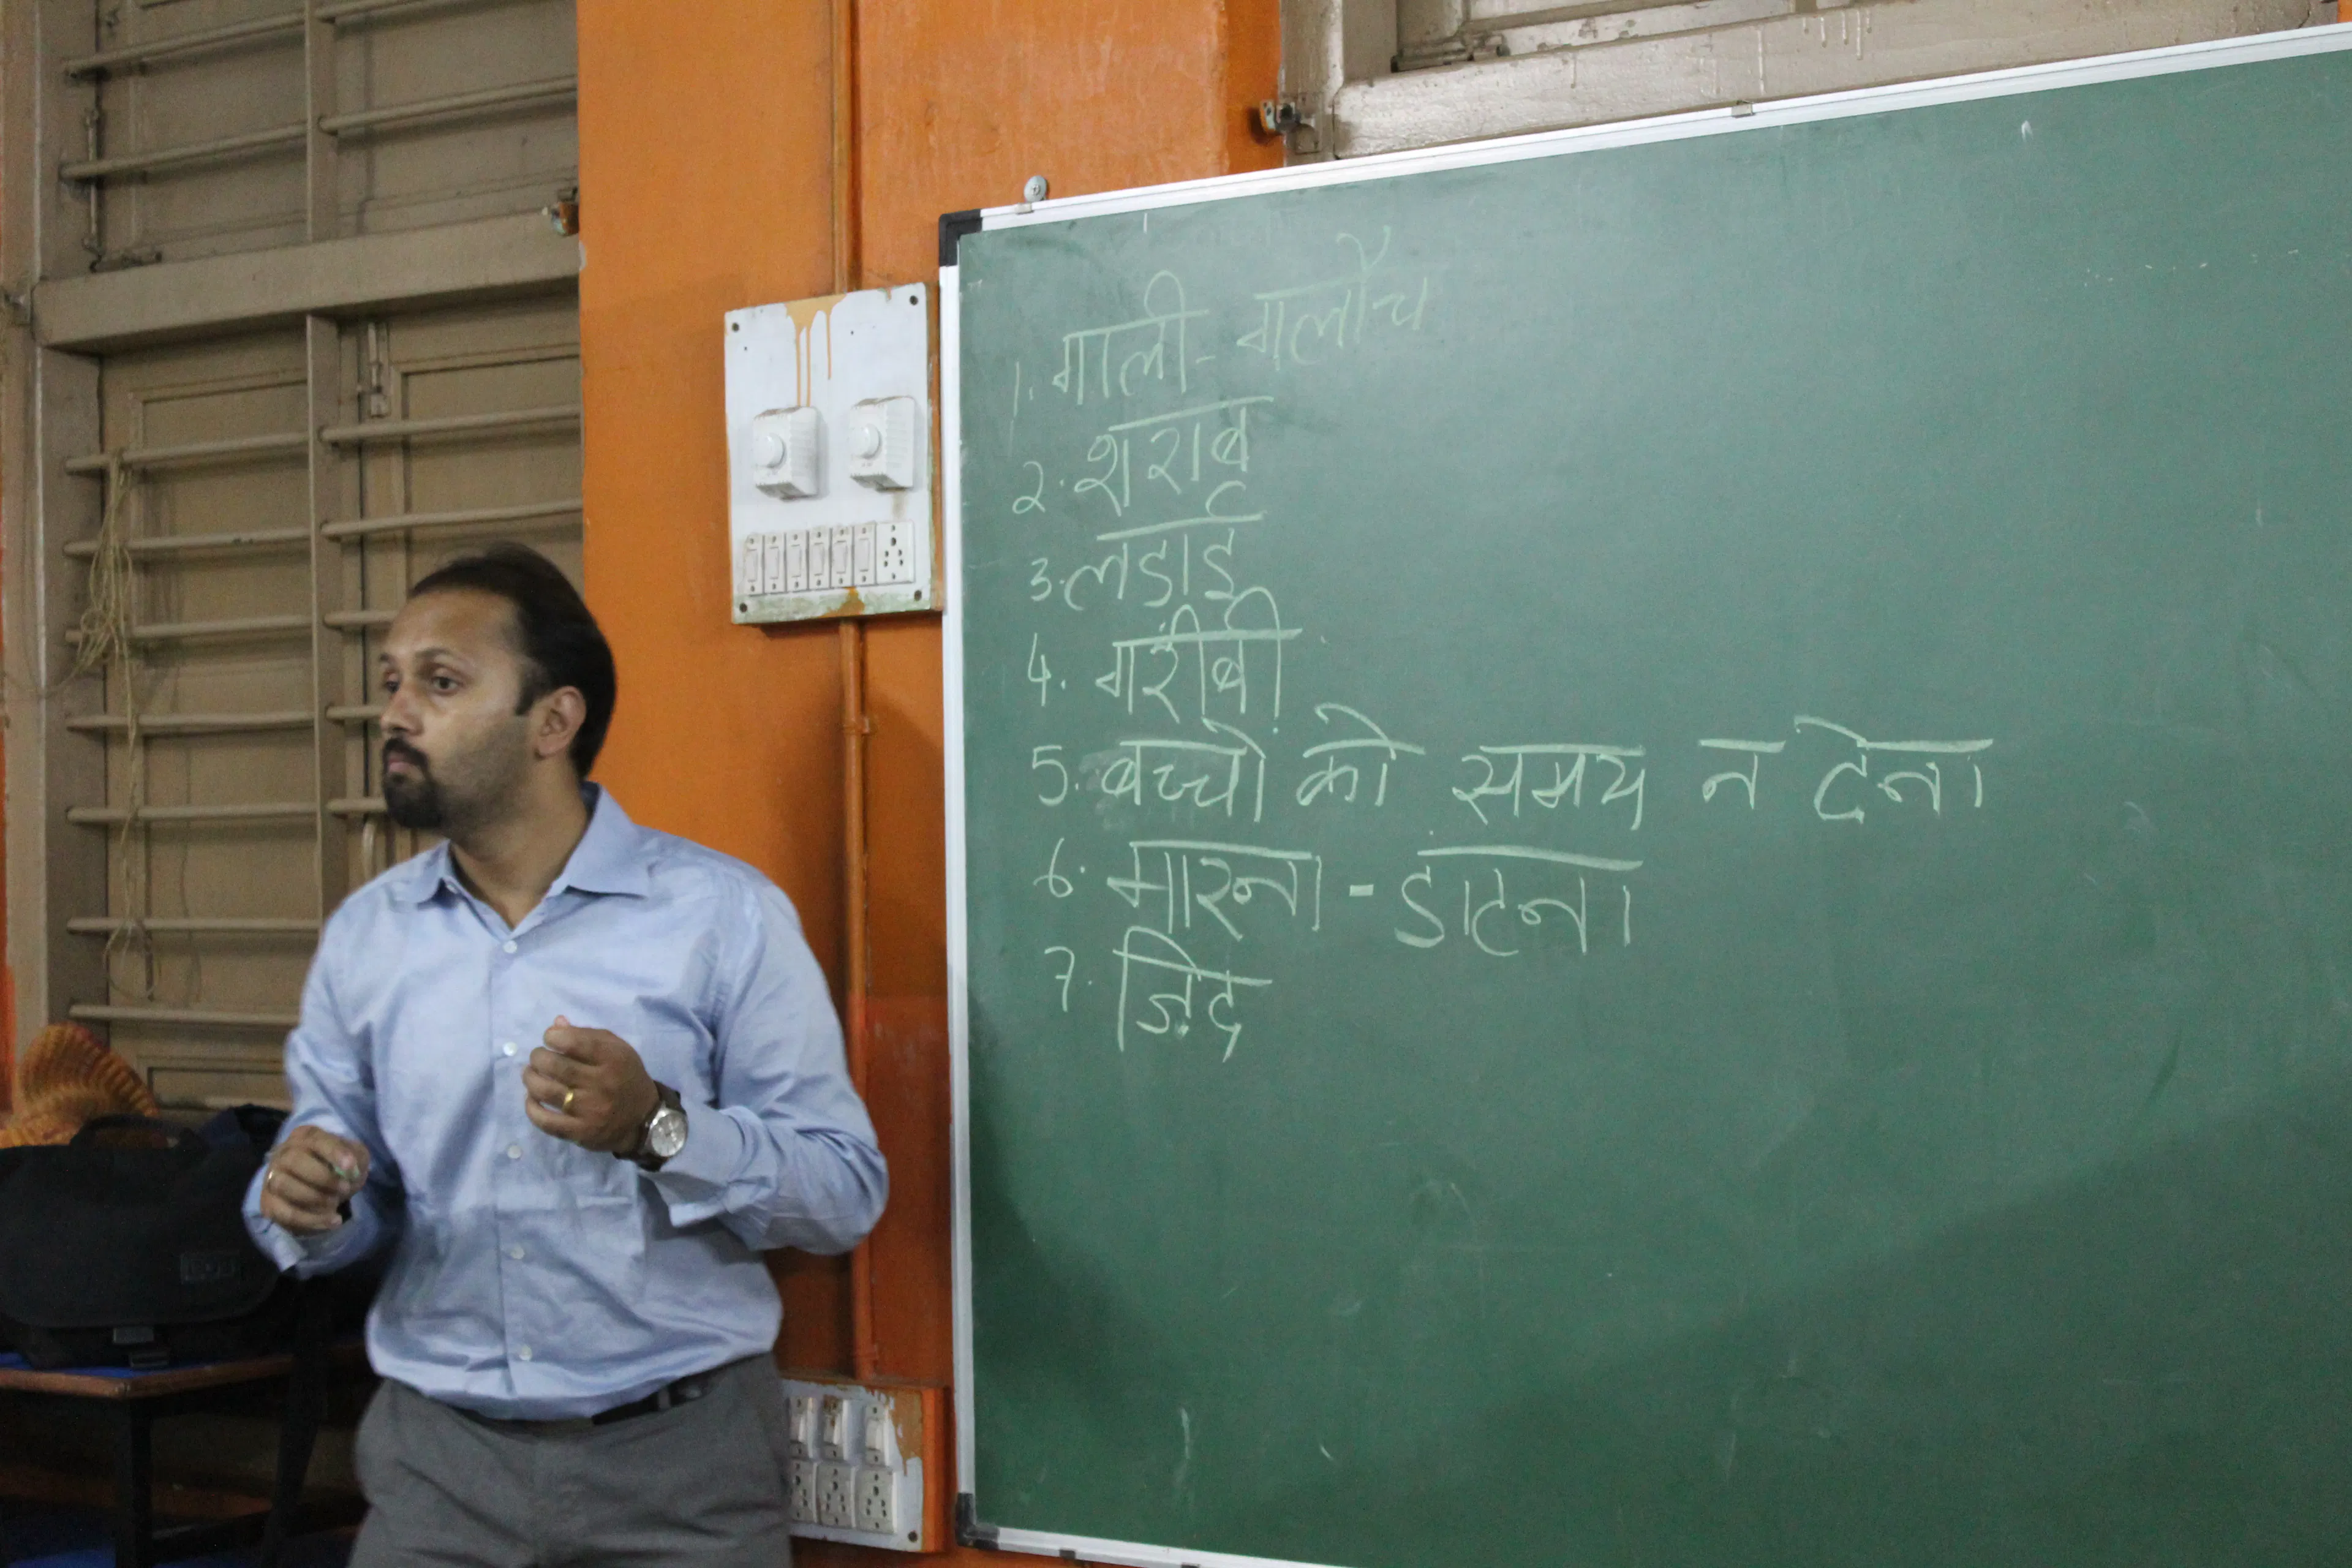 1. गाली - गलौच
2. शराब
3. लडाई
4. गरीबी
5. बच्चो को समय न देना
6. मारना - डाटना
7. ज़िद